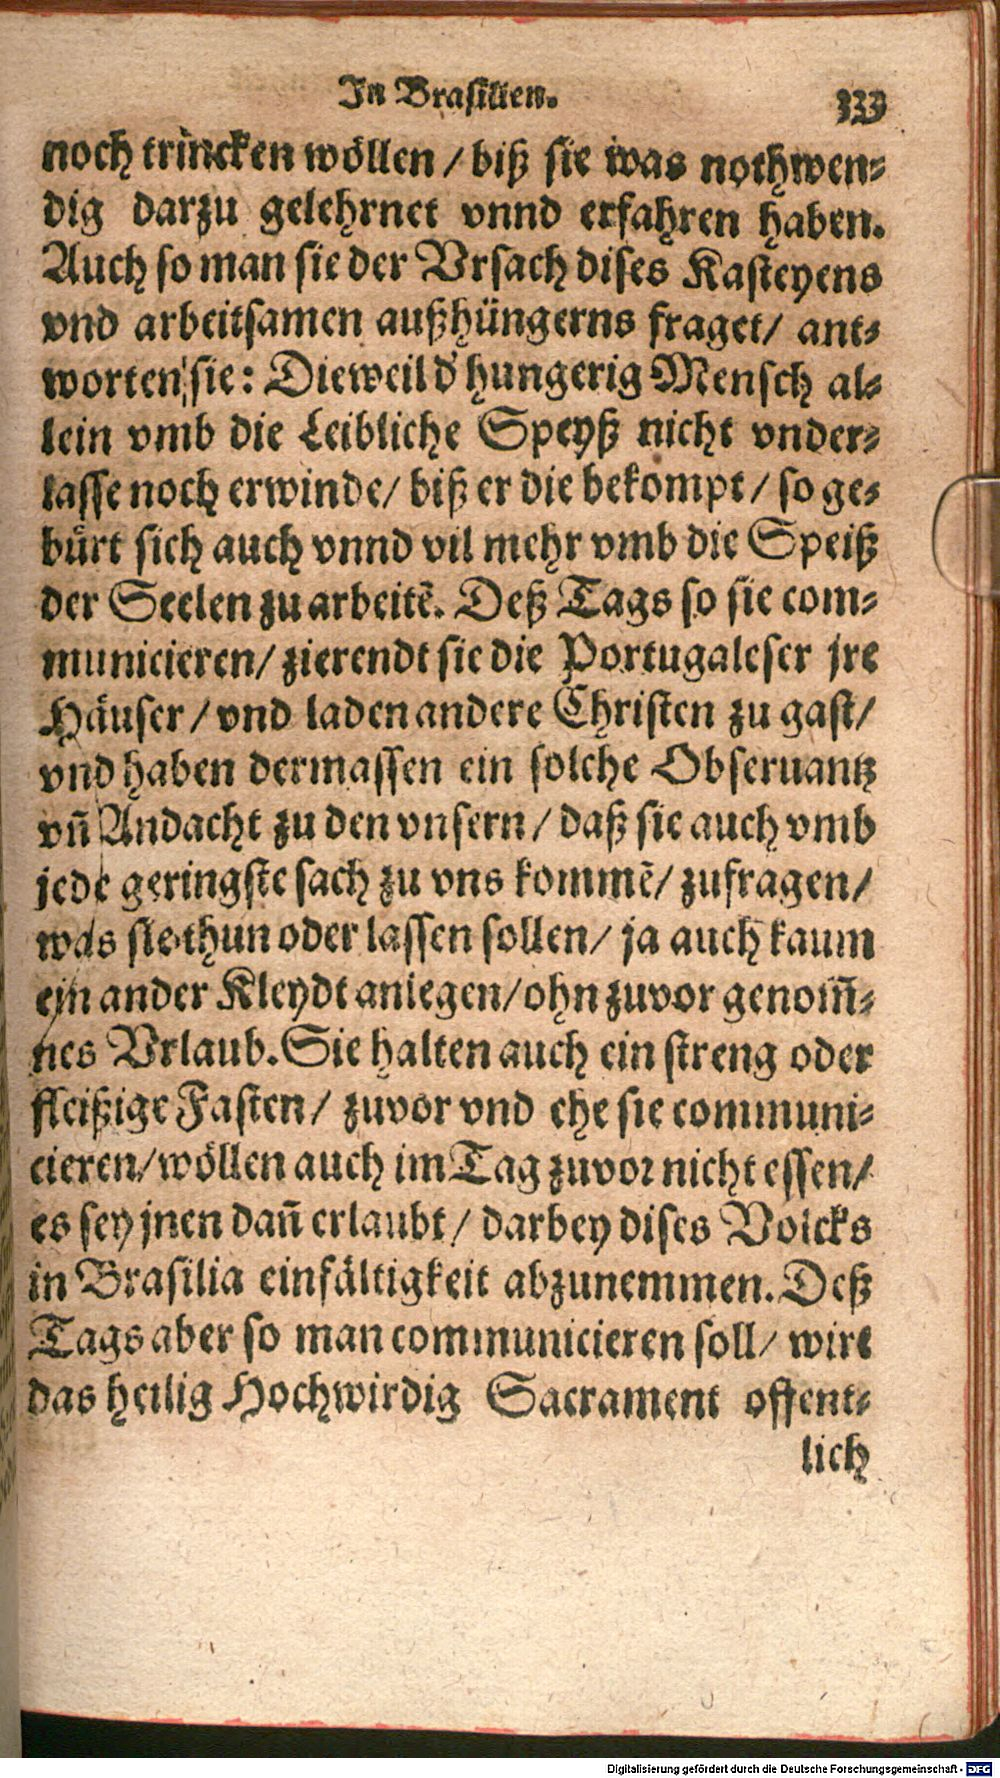 In Brasilien. 333
noch trincken wöllen / biß sie was nothwen-
dig darzu gelehrnet vnnd erfahren haben.
Auch so man sie der Vrsach dises Kasteyens
vnd arbeitsamen außhüngerns fraget / ant-
worten sie: Dieweil d' hungerig Mensch al-
lein vmb die Leibliche Speyß nicht vnder-
lasse noch erwinde / biß er die bekompt / so ge-
bürt sich auch vnnd vil mehr vmb die Speiß
der Seelen zu arbeitẽ. Deß Tags so sie com-
municieren / zierendt sie die Portugaleser jre
Häuser / vnd laden andere Christen zu gast /
vnd haben dermassen ein solche Obseruantz
vñ Andacht zu den vnsern / daß sie auch vmb
jede geringste sach zu vns kommẽ / zufragen /
was sie thun oder lassen sollen / ja auch kaum
ein ander Kleydt anlegen / ohn zuvor genom̃-
nes Vrlaub. Sie halten auch ein streng oder
fleißige Fasten / zuvor vnd ehe sie communi-
cieren / wöllen auch im Tag zuvor nicht essen /
es sey jnen dañ erlaubt / darbey dises Volcks
in Brasilia einfältigkeit abzunemmen. Deß
Tags aber so man communicieren soll / wirt
das heilig Hochwirdig Sacrament offent-
lich
Digitalisierung gefördert durch die Deutsche Forschungsgemeinschaft - DFG